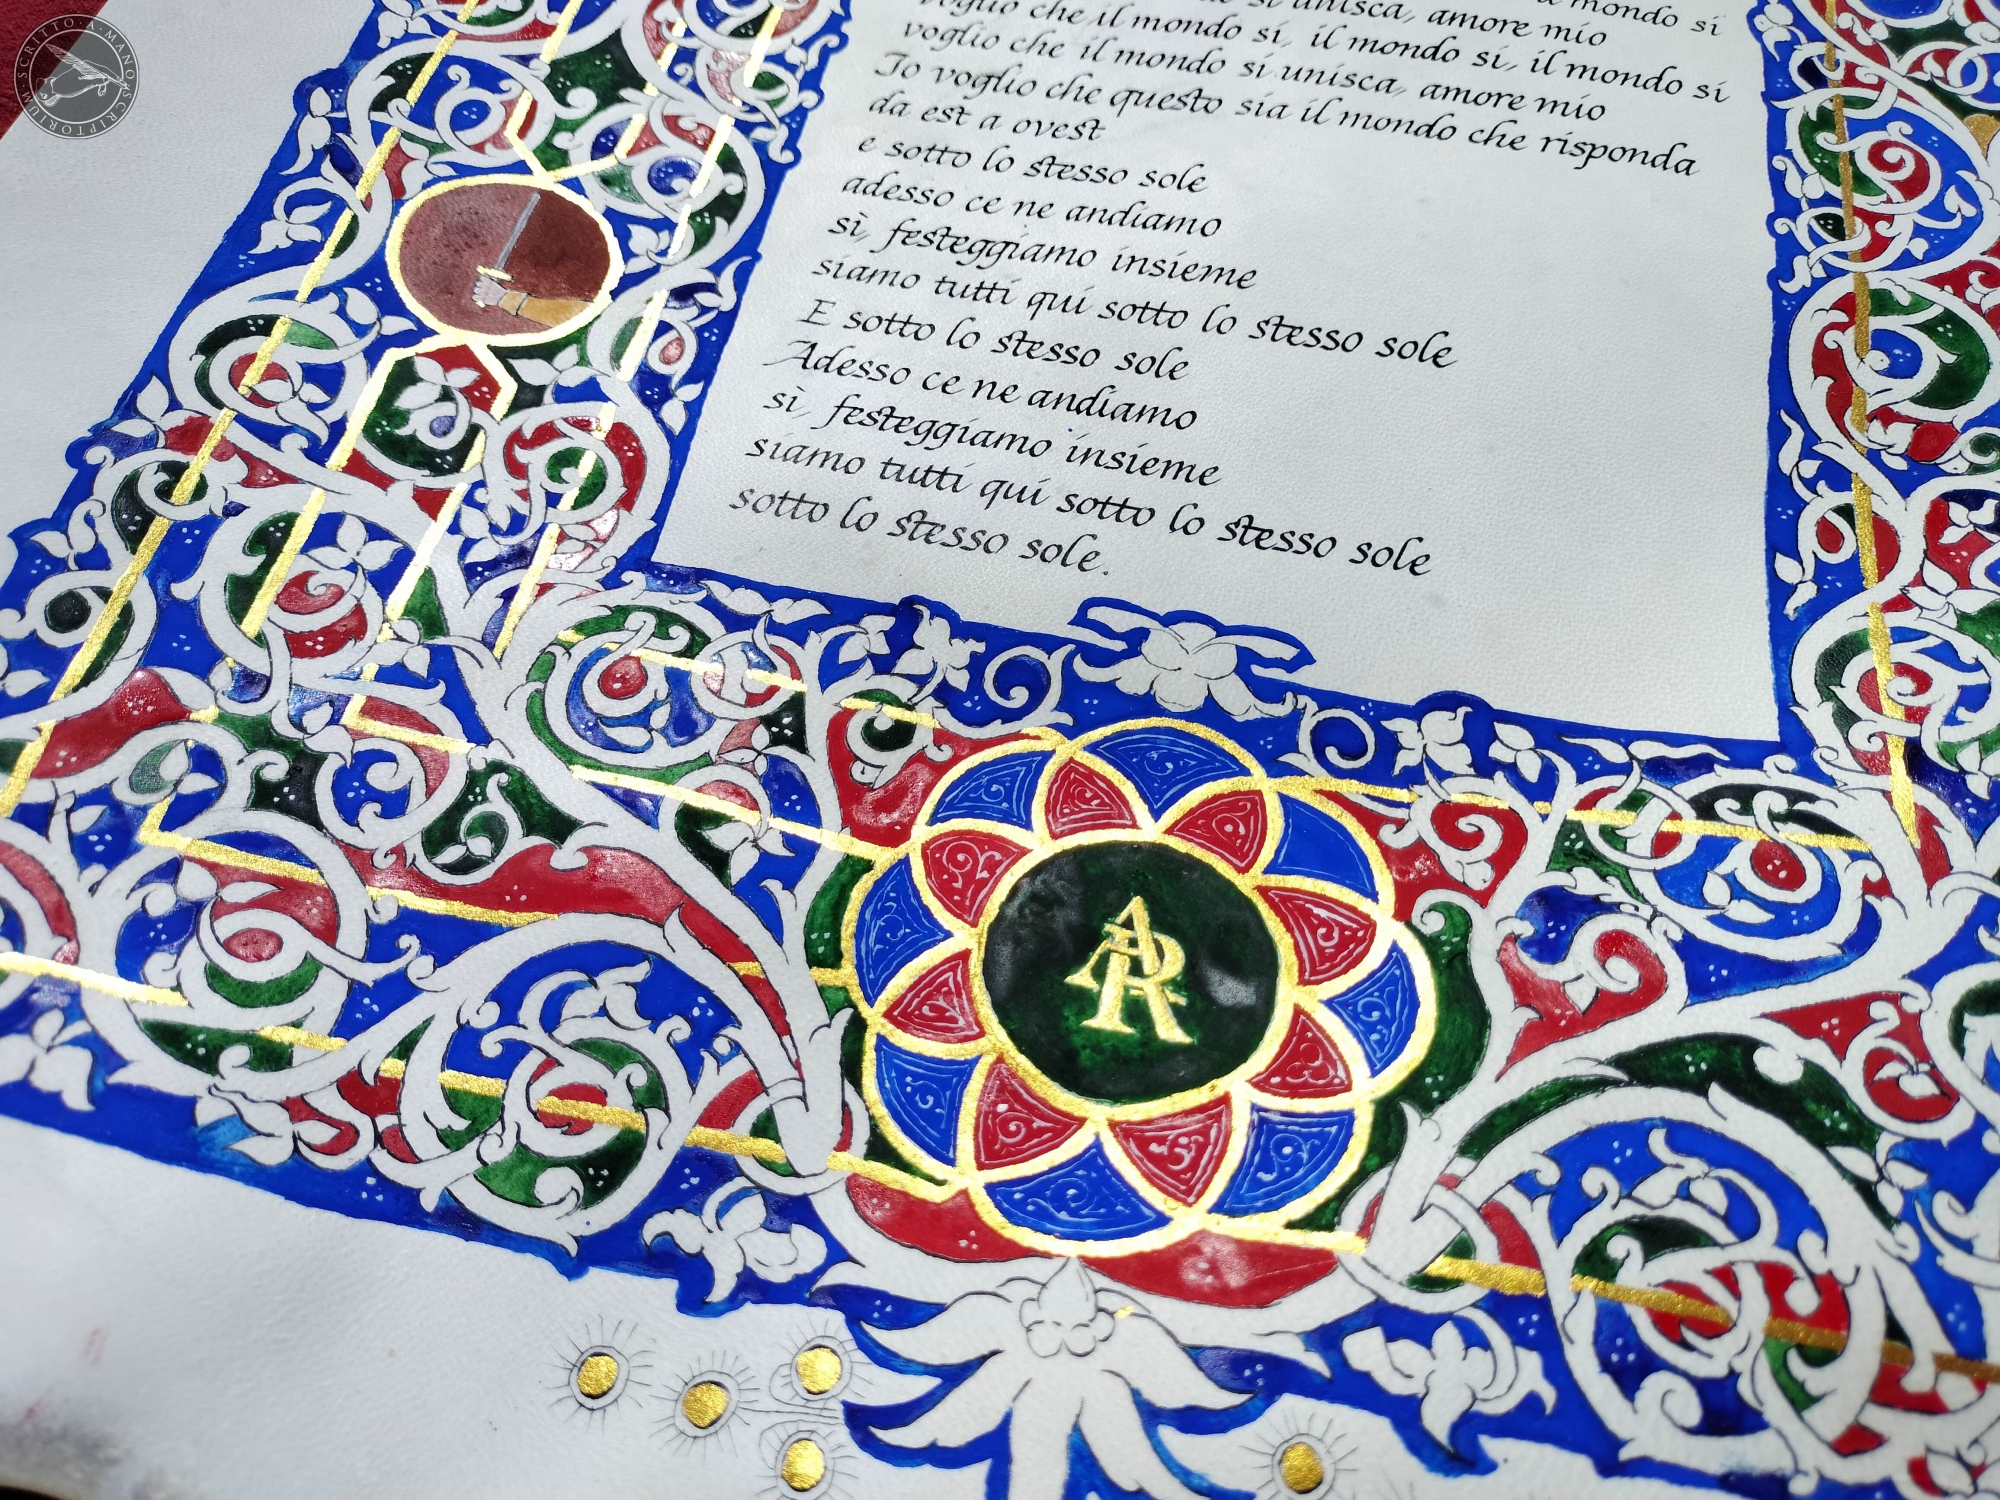 mondo si
si unisca, amore mio
voglio che il mondo si, il mondo si, il mondo si
voglio che il mondo si unisca, amore mio
Io voglio che questo sia il mondo che risponda
da est a ovest
e sotto lo stesso sole
adesso ce ne andiamo
sì, festeggiamo insieme
siamo tutti qui sotto lo stesso sole
E sotto lo stesso sole
Adesso ce ne andiamo
sì, festeggiamo insieme
siamo tutti qui sotto lo stesso sole
sotto lo stesso sole.
AR
SCRITTO · A · MANO · SCRIPTORIUM